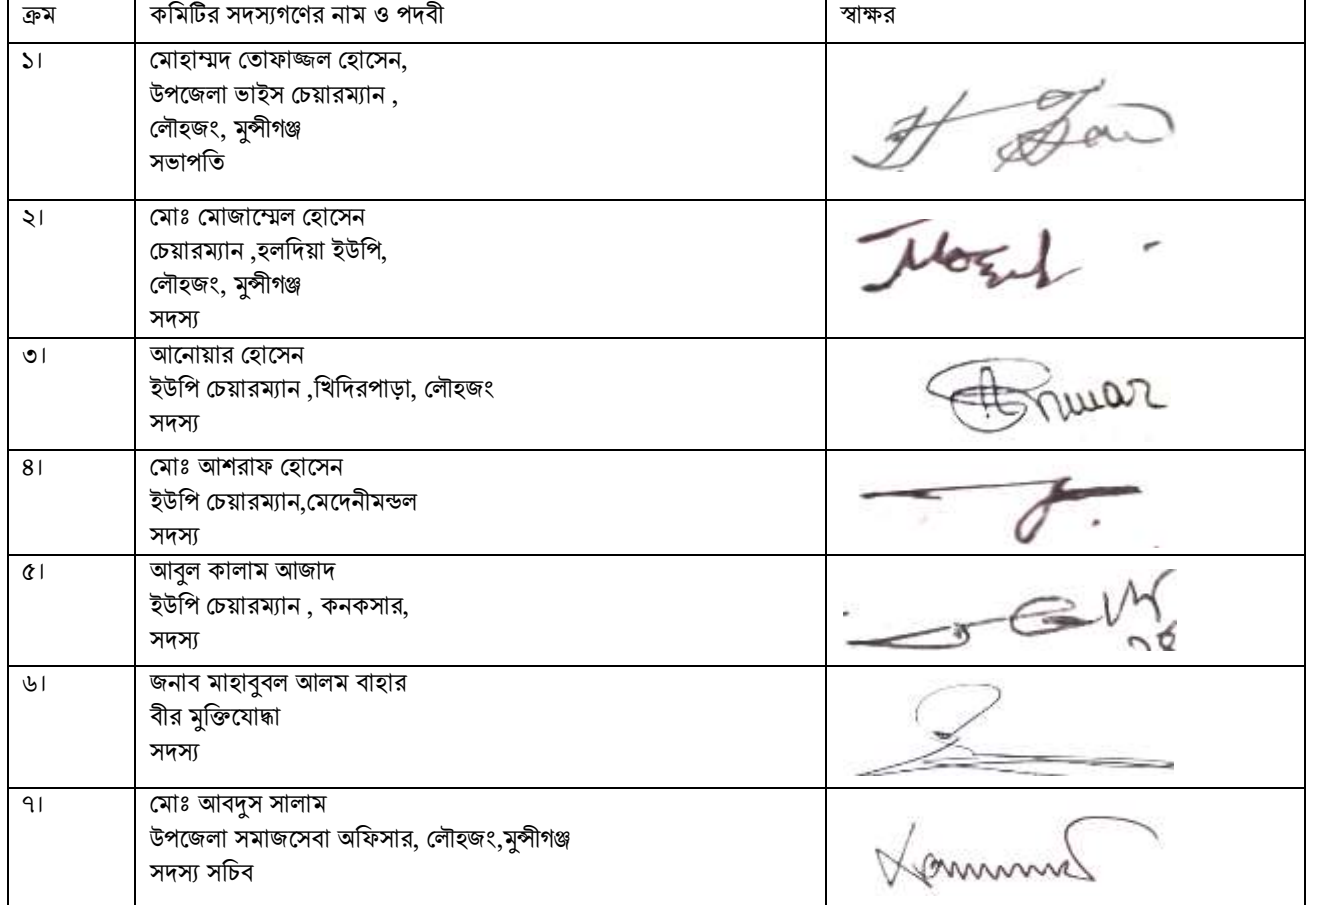 ক্রম কমিটির সদস্যগণের নাম ও পদবী স্বাক্ষর
১। মোহাম্মদ তোফাজ্জল হোসেন,
উপজেলা ভাইস চেয়ারম্যান ,
লৌহজং, মুন্সীগঞ্জ
সভাপতি
২। মোঃ মোজাম্মেল হোসেন
চেয়ারম্যান ,হলদিয়া ইউপি,
লৌহজং, মুন্সীগঞ্জ
সদস্য
৩। আনোয়ার হোসেন
ইউপি চেয়ারম্যান ,খিদিরপাড়া, লৌহজং
সদস্য
Anwar
৪। মোঃ আশরাফ হোসেন
ইউপি চেয়ারম্যান,মেদেনীমন্ডল
সদস্য
৫। আবুল কালাম আজাদ
ইউপি চেয়ারম্যান , কনকসার,
সদস্য
৬। জনাব মাহাবুবল আলম বাহার
বীর মুক্তিযোদ্ধা
সদস্য
৭। মোঃ আবদুস সালাম
উপজেলা সমাজসেবা অফিসার, লৌহজং,মুন্সীগঞ্জ
সদস্য সচিব